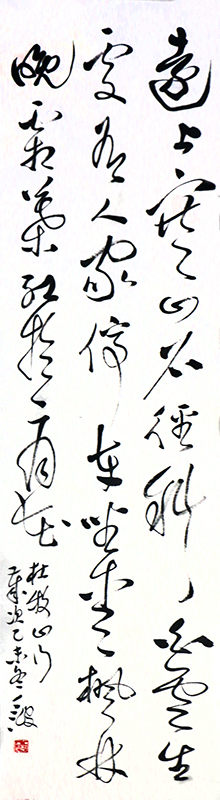 遠上寒山石徑斜白雲生
處有人家停車坐愛楓林
晚霜葉紅於二月花
杜牧山行
歲次乙未冬